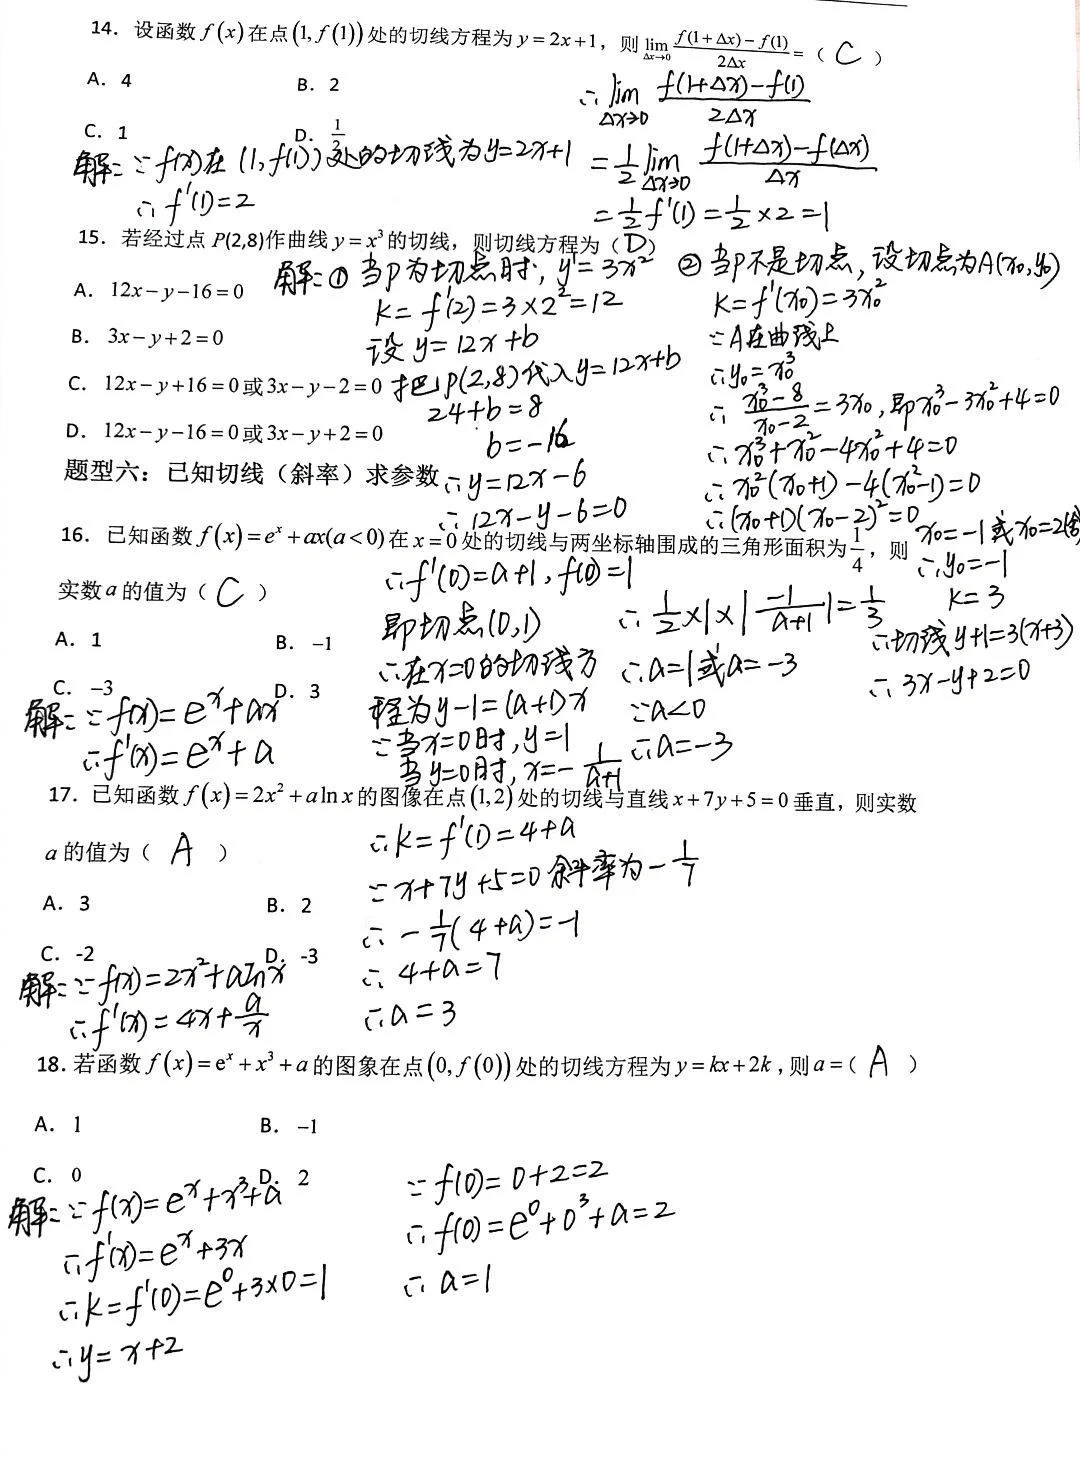 14. 设函数 f(x) 在点 (1, f(1)) 处的切线方程为 y = 2x + 1，则 lim_{Δx→0} \frac{f(1+Δx) − f(1)}{2Δx} = （ C ）
A. 4
B. 2
∴ lim_{Δx→0} \frac{f(1+Δx) − f(1)}{2Δx}
C. 1
D. \frac{1}{2}
解: ∵ f(x)在 (1, f(1)) 处的切线为 y=2x+1
= \frac{1}{2} lim_{Δx→0} \frac{f(1+Δx) − f(Δx)}{Δx}
∴ f'(1)=2
= \frac{1}{2} f'(1) = \frac{1}{2} × 2 = 1
15. 若经过点 P(2,8)作曲线 y = x³ 的切线，则切线方程为（ D ）
A. 12x − y − 16 = 0
B. 3x − y + 2 = 0
C. 12x − y + 16 = 0 或 3x − y − 2 = 0
D. 12x − y − 16 = 0 或 3x − y + 2 = 0
解: ① 当P为切点时, y' = 3x²
K = f'(2) = 3×2² = 12
设 y = 12x + b
把P(2,8)代入 y=12x+b
24+b=8
b=−16
∴ y=12x−6
∴ 12x−y−6=0
② 当P不是切点, 设切点为A(x₀, y₀)
K = f'(x₀) = 3x₀²
∵ A在曲线上
∴ y₀ = x₀³
∴ \frac{x₀³−8}{x₀−2} = 3x₀, 即 x₀³−3x₀²+4=0
∴ x₀³+x₀²−4x₀²+4=0
∴ x₀²(x₀+1)−4(x₀²−1)=0
∴ (x₀+1)(x₀−2)²=0
x₀=−1或x₀=2
∴ y₀=−1
K=3
∴ 切线 y+1=3(x+3)
∴ 3x−y+2=0
题型六：已知切线（斜率）求参数
16. 已知函数 f(x) = eˣ + ax(a < 0) 在 x = 0 处的切线与两坐标轴围成的三角形面积为 \frac{1}{4}，则
实数 a 的值为（ C ）
A. 1
B. −1
C. −3
D. 3
解: ∵ f(x)=eˣ+ax
∴ f'(x)=eˣ+a
∴ f'(0)=a+1, f(0)=1
即切点(0,1)
∴ 在x=0的切线方
程为 y−1=(a+1)x
∵ 当x=0时, y=1
当y=0时, x=−\frac{1}{a+1}
∴ \frac{1}{2}×1×|\frac{−1}{a+1}|=\frac{1}{3}
∴ a=1或a=−3
∵ a<0
∴ a=−3
17. 已知函数 f(x) = 2x² + a ln x 的图像在点 (1,2) 处的切线与直线 x + 7y + 5 = 0 垂直，则实数
a 的值为（ A ）
A. 3
B. 2
C. -2
D. -3
解: ∵ f(x)=2x²+alnx
∴ f'(x)=4x+\frac{a}{x}
∴ K=f'(1)=4+a
∵ x+7y+5=0 斜率为−\frac{1}{7}
∴ −\frac{1}{7}(4+a)=−1
∴ 4+a=7
∴ a=3
18. 若函数 f(x) = eˣ + x³ + a 的图象在点 (0, f(0)) 处的切线方程为 y = kx + 2k，则 a =（ A ）
A. 1
B. −1
C. 0
D. 2
解: ∵ f(x)=eˣ+x³+a
∴ f'(x)=eˣ+3x
∴ K=f'(0)=e⁰+3×0=1
∴ y=x+2
∵ f(0)=0+2=2
∴ f(0)=e⁰+0³+a=2
∴ a=1